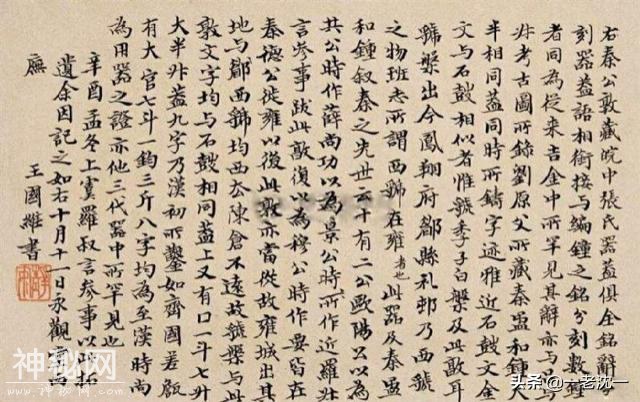 右秦公敦藏皖中張氏器蓋俱全銘辭
刻器蓋語相銜接與編鐘之銘分刻數鐘
者同為從來吉金中所罕見其辭亦與
考古圖所錄劉原父所藏秦盄和鐘大
半相同蓋同時所鑄字迹雅近石鼓文金
文與石鼓相似者惟虢季子白盤及此敦耳
虢盤出今鳳翔府郿縣礼邨乃西虢
之物班志所謂西虢在雍者也此器及秦盄
和鐘叙秦之先世云十有二公歐陽公以為
共公時作薛尚功以為景公時所作近羅叔
言參事跋此敦復以為穆公時作要皆在
秦德公徙雍以後此敦亦當從故雍城出其
地與郿西虢均西去陳倉不遠故虢盤與此
敦文字均與石鼓相同蓋上又有口一斗七升
大半升蓋九字乃漢初所鑿如齊國差
有大官七斗一鈞三斤八字均為至漢時尚
為用器之證亦他三代器中所罕見也
辛酉孟冬上虞羅叔言參事以拓
遺余因記之如右十月十一日永觀
廡 王國維書
神秘网
头条 @一老沈一